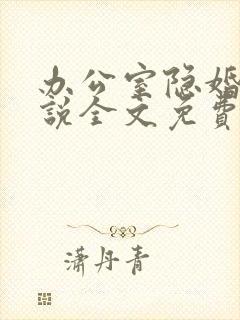 办公室隐婚
说全文免费
潇丹青